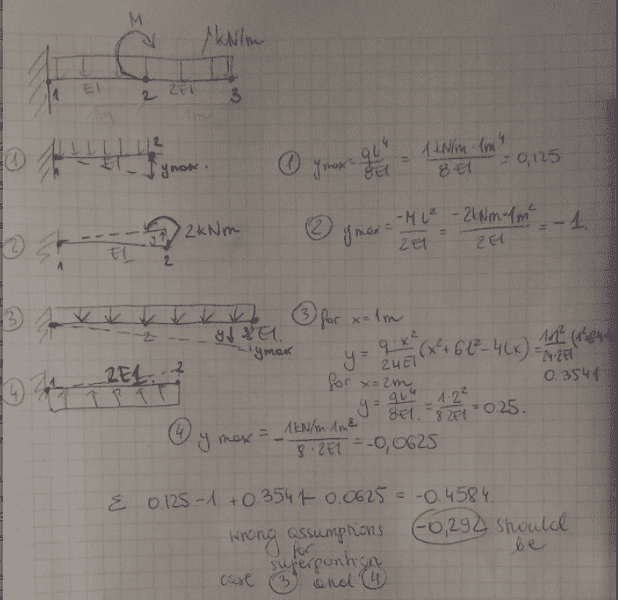 M
1kN/m
1 EI 2 2EI 3
1m 1m
① 1 EI 2 ymax.
① ymax = qL⁴/8EI = 1kN/m·1m⁴/8·EI = 0,125
② 1 EI 2 y 2kNm
② ymax = -ML²/2EI = -2kNm·1m²/2EI = -1.
③ 2 y EI. ymax
③ for x=1m
y = q·x²/24EI (x²+6L²-4Lx) =
0.3541
for x=2m
y = qL⁴/8EI. = 1·2²/8·2EI = 0.25.
④ 1 2EI 2
④ ymax = -1kN/m·1m²/8·2EI = -0,0625
Σ 0.125-1+0.3541-0.0625 = -0.4584.
wrong assumptions
for
superposition
case ③ and ④
-0,292 should
be